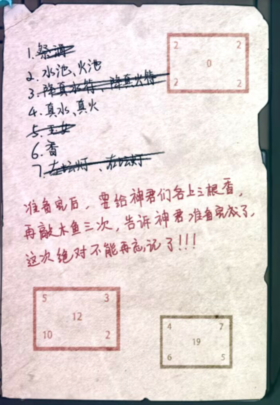 1.
2 2
0
2 2
2.水池、火池
3.除真水符、除真火符
4.真水、真火
5.
6.香
7.左坛灯、右坛灯
准备完后，要给神君们各上三根香，
再敲木鱼三次，告诉神君准备完成了，
这次绝对不能再忘记了!!!
5 3
12
10 2
4 7
19
6 5